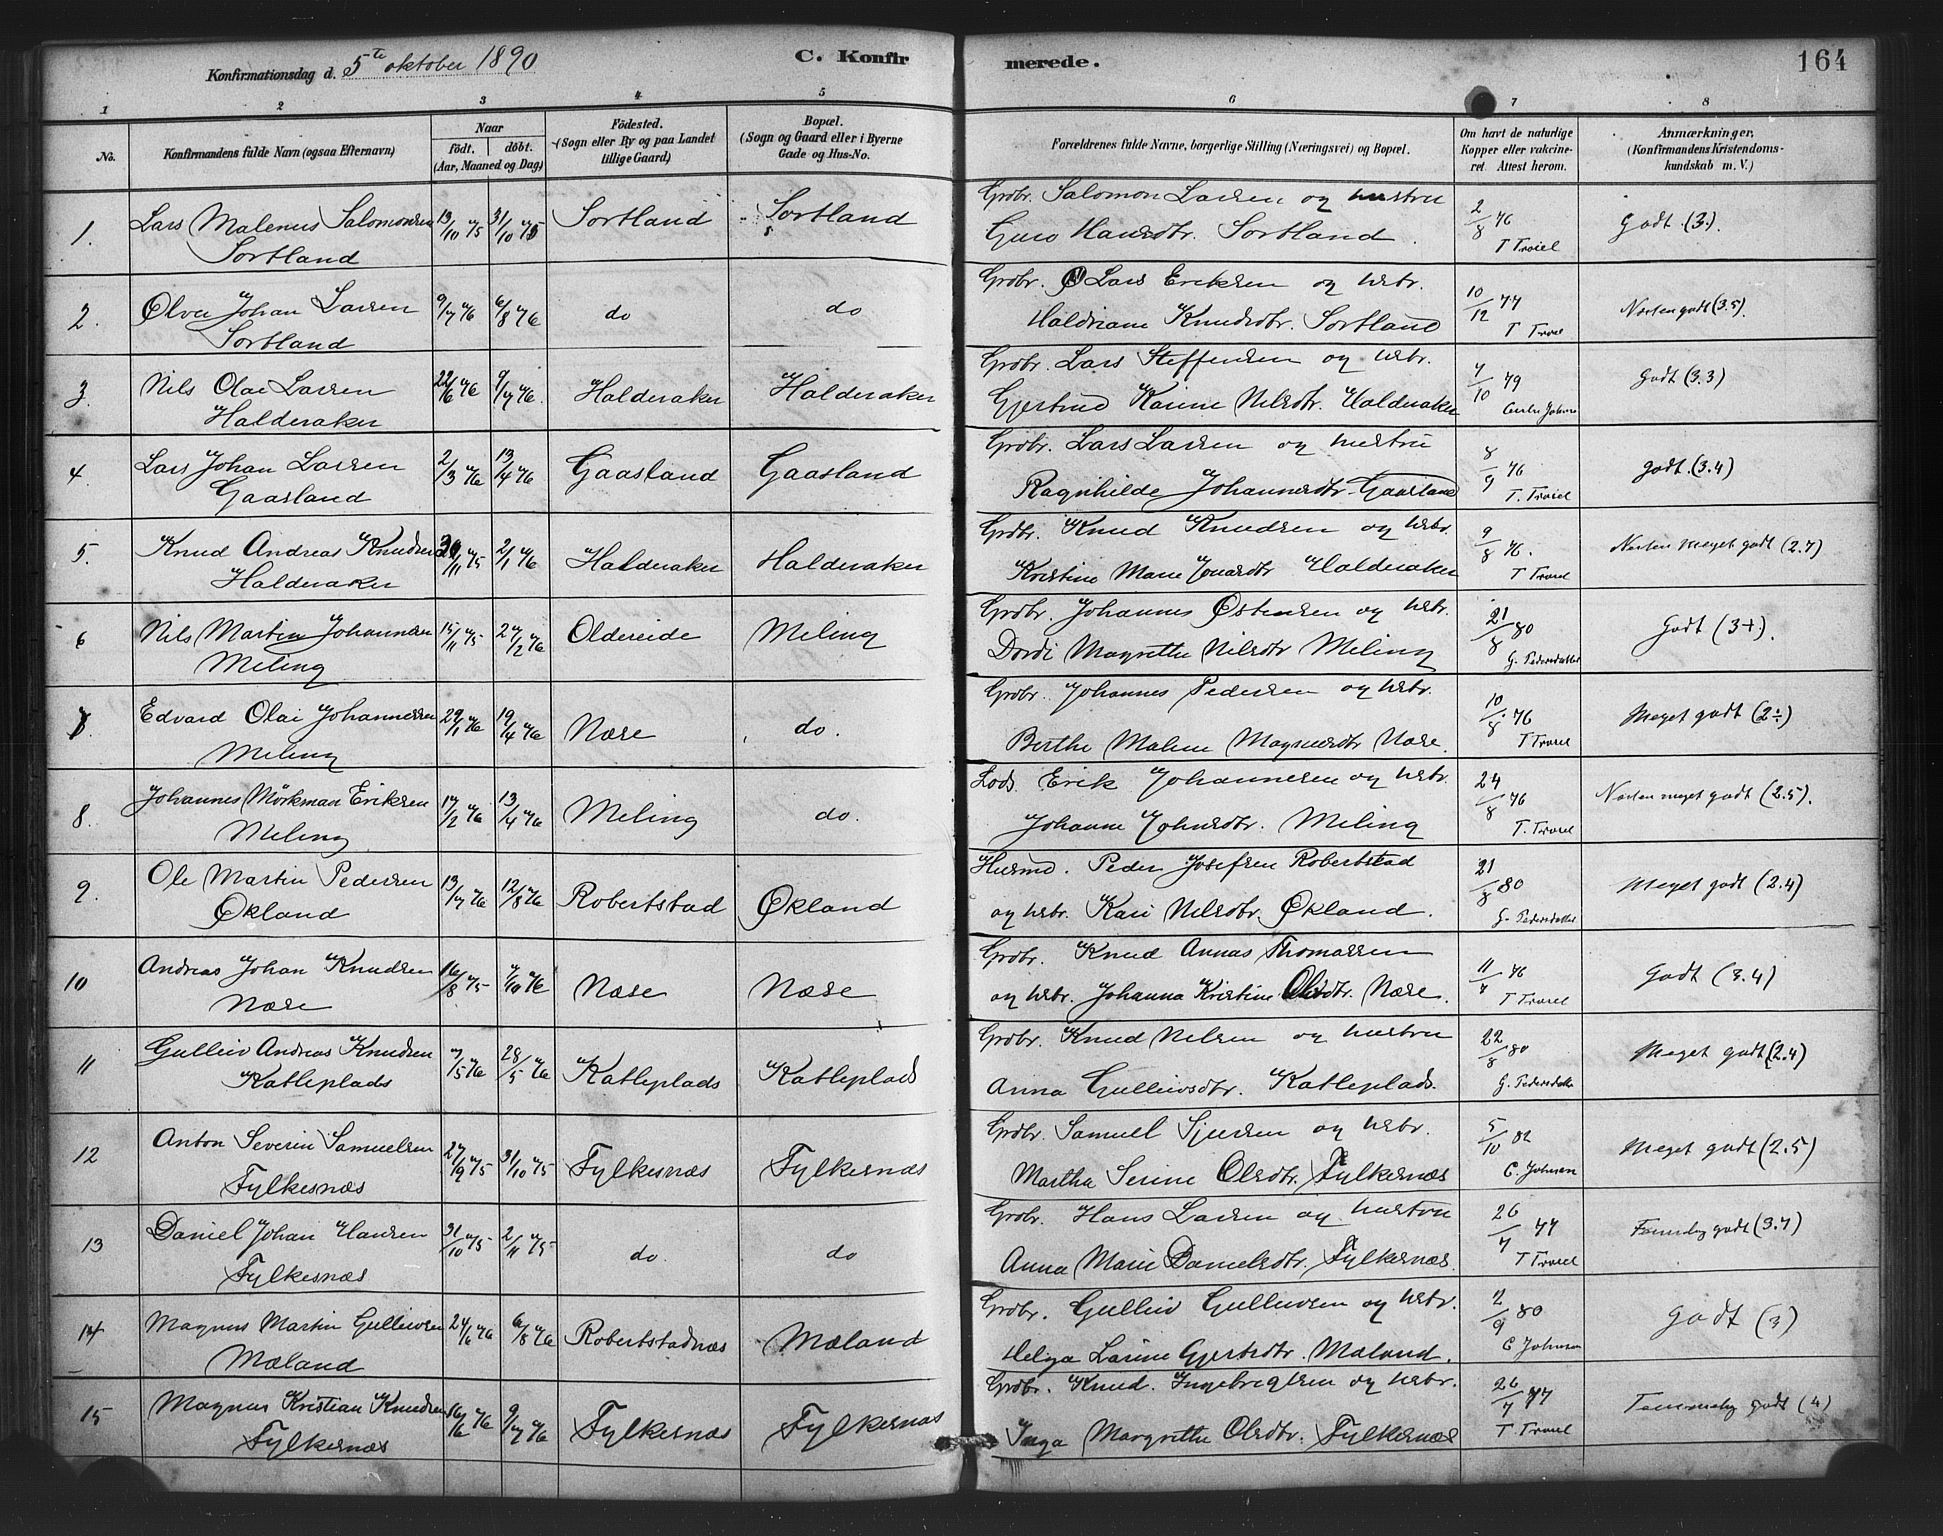 Konfirmationsdag d. 5te oktober 1890
C. Konfirmerede.
164
1 2 3 4 5 6 7 8
No.
Konfirmandens fulde Navn (ogsaa Efternavn)
Naar
födt. döbt.
(Aar, Maaned og Dag)
Födested.
(Sogn eller By og paa Landet
tillige Gaard)
Bopæl.
(Sogn og Gaard eller i Byerne
Gade og Hus-No.
Forældrenes fulde Navne, borgerlige Stilling (Næringsvei) og Bopæl.
Om havt de naturlige
Kopper eller vakcine-
ret. Attest herom.
Anmærkninger,
(Konfirmandens Kristendoms-
kundskab m. V.)
1. Lars Malenus Salomonsen 13/10 75 31/10 75 Sortland Sortland Grdbr. Salomon Larsen og hustru 2/8 76 Godt (3).
Sortland Guro Hansdtr. Sortland. T Troiel
2. Olva Johan Larsen 9/7 76 6/8 76 do do Grdbr. Lars Eriksen og hstr. 10/12 77 Næsten godt (3.5).
Sortland Haldriane Knudsdtr. Sortland T Troiel
3. Nils Olai Larsen 22/6 76 9/7 76. Halderaker Halderaker Grdbr. Lars Steffensen og hstr. 7/10 79 Godt (3.3)
Halderaker Gjertrud Karine Nilsdtr. Halderaker
4. Lars Johan Larsen 2/3 76 13/4 76 Gaasland Gaasland Grdbr. Lars Larsen og hustru 8/9 76 godt. (3.4)
Gaasland Ragnhilde Johannesdtr. Gaasland T. Troiel
5. Knud Andreas Knudsen 30/11 75 2/1 76 Halderaker Halderaker Grdbr. Knud Knudsen og hstr. 9/8 76. Næsten meget godt (2.7)
Halderaker Kristine Marie Jonasdtr Halderaker T Troiel
6 Nils Martin Johannesen 15/11 75 27/2 76 Oldereide Meling Grdbr. Johannes Østensen og hstr. 21/8 80 Godt (3+).
Meling Dordi Magrethe Nilsdtr Meling G. Pedersdatter
7. Edvard Olai Johannessen 29/1 76 19/4 76 Næse do. Grdbr. Johannes Pedersen og hstr. 10/8 76 Meget godt (2÷)
Meling Berthe Malene Magnusdtr Næse. T Troiel
8. Johannes Mörkman Eriksen 17/2 76 13/4 76 Meling do. Lods. Erik Johannesen og hstr. 24/8 76 Næsten meget godt (2.5).
Meling Johanne Johnsdtr. Meling T. Troiel
9. Ole Martin Pedersen 13/7 76 12/8 76 Robertstad Økland Husmd. Peder Josefsen Robertstad 21/8 80 Meget godt (2.4)
Økland og hstr. Kari Nilsdtr. Økland. G. Pedersdatter
10 Andreas Johan Knudsen 16/8 75 7/10 76 Næse Næse Grdbr. Knud Annas Thomassen 11/8 76 Godt (3.4)
Næse og hstr. Johanna Kristine Olsdtr. Næse. T Troiel
11 Gulleiv Andreas Knudsen 7/5 76 28/5 76 Katleplads Katleplads Grdbr. Knud Nilsen og hustru 22/8 80 Meget godt (2.4)
Katleplads Anna Gulleivsdtr. Katleplads. G. Pedersdatter
12 Anton Severin Samuelsen 27/9 75 31/10 75 Fylkesnæs Fylkesnæs Grdbr. Samuel Sjursen og hstr. 5/10 82 Meget godt (2.5)
Fylkesnæs Martha Serine Olsdtr. Fylkesnæs C. Johnsen
13 Daniel Johan Hansen 31/10 75 2/11 75 do do Grdbr. Hans Larsen og hustru 26/7 77 Temmelig godt (3.7)
Fylkesnæs Anna Marie Danielsdtr. Fylkesnæs. T Troiel
14 Magnus Martin Gulleivsen 24/6 76 6/8 76 Robertstadnæs Mæland Grdbr. Gulleiv Gulleivsen og hstr. 2/9 80 Godt (3)
Mæland Helga Larine Gjertsdtr. Mæland. C Johnsen
15 Magnus Kristian Knudsen 16/6 76 9/7 76 Fylkesnæs Fylkesnæs Grdbr. Knud. Ingebrigtsen og hstr. 26/7 77 Temmelig godt (4)
Fylkesnæs Inga Margrethe Olsdtr. Fylkesnæs T. Troiel